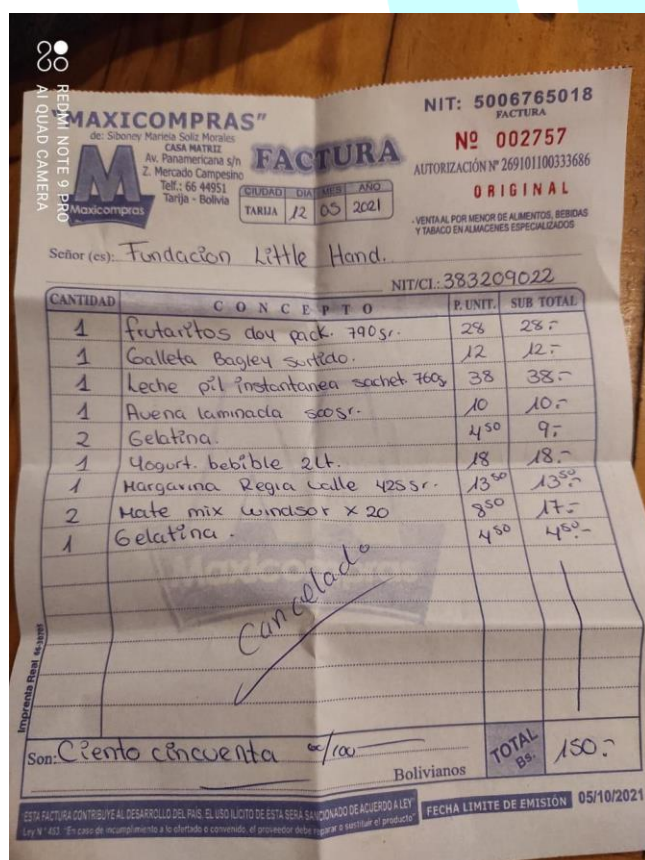 REDMI NOTE 9 PRO
AI QUAD CAMERA
"MAXICOMPRAS"
de: Siboney Mariela Soliz Morales
CASA MATRIZ
Av. Panamericana s/n
Z. Mercado Campesino
Telf.: 66 44951
Tarija - Bolivia
Maxicompras
FACTURA
CIUDAD DIA MES AÑO
TARIJA 12 05 2021
NIT: 5006765018
FACTURA
Nº 002757
AUTORIZACIÓN Nº 269101100333686
ORIGINAL
- VENTA AL POR MENOR DE ALIMENTOS, BEBIDAS
Y TABACO EN ALMACENES ESPECIALIZADOS
Señor (es): Fundacion Little Hand.
NIT/CI.: 383209022
CANTIDAD CONCEPTO P. UNIT. SUB TOTAL
1 frutaritos doy pack. 790gr. 28 28.-
1 Galleta Bagley surtido. 12 12.-
1 Leche pil instantanea sachet 760g 38 38.-
1 Avena laminada 500gr. 10 10.-
2 Gelatina. 4 50 9.-
1 Yogurt. bebible 2Lt. 18 18.-
1 Margarina Regia valle 425gr. 13 50 13 50.-
2 Mate mix windsor x 20 8 50 17.-
1 Gelatina. 4 50 4 50.-
Maxicompras
Cancelado
Imprenta Real
Son: Ciento cincuenta 00/100 Bolivianos
TOTAL Bs. 150.-
ESTA FACTURA CONTRIBUYE AL DESARROLLO DEL PAÍS, EL USO ILÍCITO DE ESTA SERÁ SANCIONADO DE ACUERDO A LEY"
Ley Nº 453 "En caso de incumplimiento a lo ofertado o convenido, el proveedor debe reparar o sustituir el producto"
FECHA LIMITE DE EMISIÓN 05/10/2021